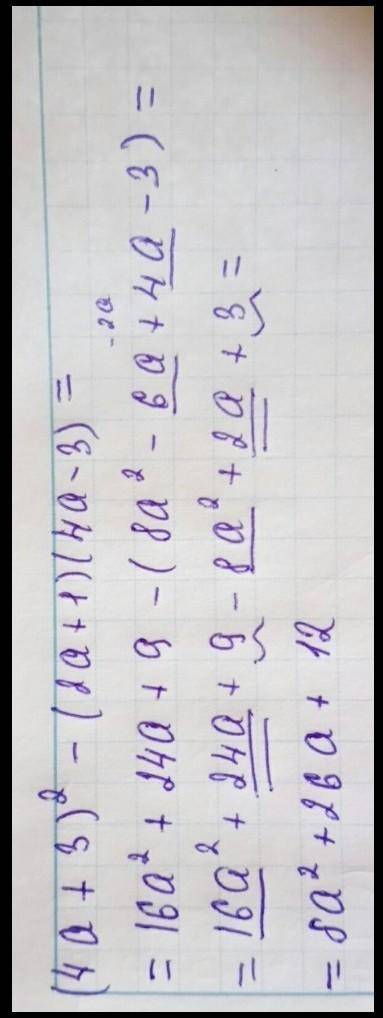 (4a + 3)² - (2a + 1)(4a - 3) =
-2a
= 16a² + 24a + 9 - (8a² - 6a + 4a - 3) =
= 16a² + 24a + 9 - 8a² + 2a + 3 =
= 8a² + 26a + 12